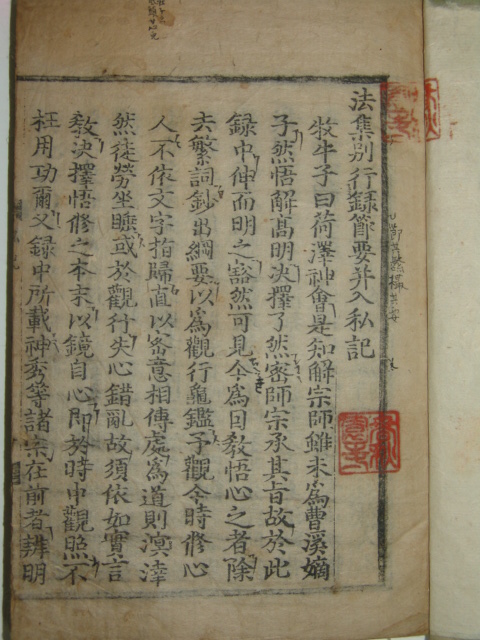 法集別行録節要并入私記
牧牛子曰荷澤神會是知解宗師雖未為曹溪嫡
子然悟解高明決擇了然密師宗承其旨故於此
録中伸而明之豁然可見今為因教悟心之者除
去繁詞鈔出綱要以為觀行龜鑑予觀今時修心
人不依文字指歸直以密意相傳處為道則溟涬
然徒勞坐睡或於觀行失心錯亂故須依如實言
教決擇悟修之本末以鏡自心即於時中觀照不
枉用功爾又録中所載神秀等諸宗在前者辨明